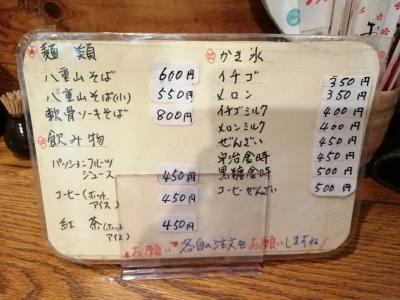 麺類
八重山そば 600円
八重山そば(小) 550円
軟骨ソーキそば 800円
飲み物
パッションフルーツ
ジュース 450円
コーヒー(ホット、
アイス) 450円
紅茶(ホット
アイス) 450円
かき氷
イチゴ 350円
メロン 350円
イチゴミルク 400円
メロンミルク 400円
ぜんざい 450円
宇治金時 450円
黒糖金時 500円
コーヒーぜんざい 500円
お願い 各自の注文をお願いしますね!